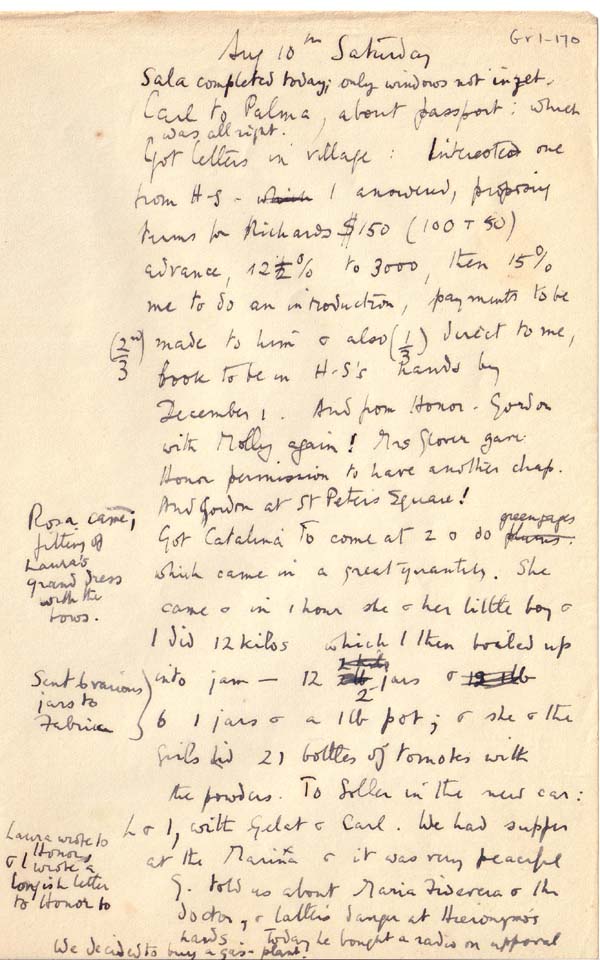 Gr1-170
Aug 10th Saturday
Sala completed today; only windows not in yet.
Carl to Palma, about passport: which
was all right.
Got letters in village: Interested one
from H-S - which I answered, proposing
terms for Richards $150 (100 + 50)
advance, 12 1/2 % to 3000, then 15%
me to do an introduction, payments to be
(2/3) made to him & also (1/3) direct to me,
book to be in H-S's hands by
December 1. And from Honor - Gordon
with Molly again! Mrs Glover gave
Honor permission to have another chap.
And Gordon at St Peter's Square!
Got Catalina to come at 2 & do plums greengages
which came in a great quantity. She
came & in 1 hour she & her little boy &
I did 12 kilos which I then boiled up
into jam - 12 2 jars & 12 1lb
6 1 jars & a 1lb pot; & she & the
girls did 21 bottles of tomatoes with
the powders. To Soller in the new car:
L & I, with Gelat & Carl. We had supper
at the Marina & it was very peaceful
G. told us about Maria
doctor, & latter's danger at Hieronymo's
hands. Today he bought a radio on approval
We decided to buy a gas-plant.
Rosa came;
fitting of
Laura's
grand dress
with the
bows.
Sent 6 various
jars to
Fabrica
Laura wrote to
Honor
& I wrote a
longish letter
to Honor to